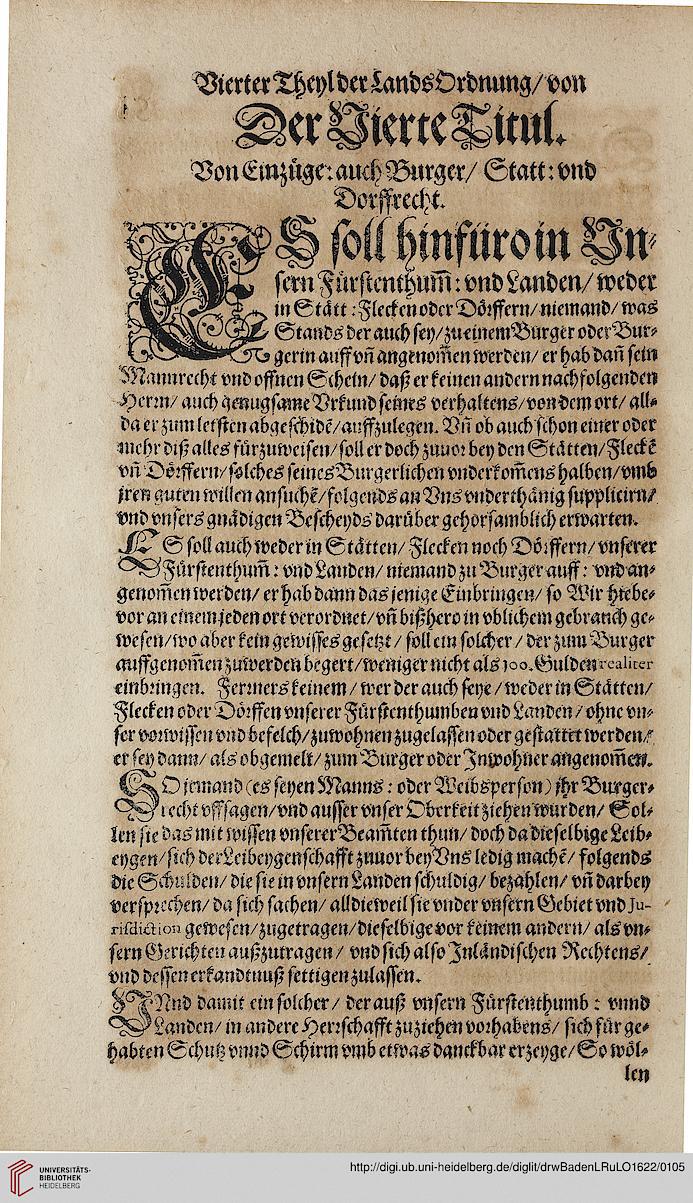 Vierter Theyl der Lands Ordnung/ von
Der Vierte Titul.
Von Einzüge: auch Burger/ Statt: vnd
Dorffrecht.
ES soll hinfüro in Vn-
sern Fürstenthum̄: vnd Landen/ weder
in Stätt: Flecken oder Dörffern/ niemand/ was
Stands der auch sey/ zu einem Burger oder Bur-
gerin auff vn̄ angenom̄en werden/ er hab dan̄ sein
Mannrecht vnd offnen Schein/ daß er keinen andern nachfolgenden
Herrn/ auch genugsame Vrkund seines verhaltens/ von dem ort/ all-
da er zum letsten abgeschidē/ auffzulegen. Vn̄ ob auch schon einer oder
mehr diß alles fürzuweisen/ soll er doch zuuor bey den Stätten/ Fleckē
vn̄ Dörffern/ solches seines Burgerlichen vnderkom̄ens halben/ vmb
jren guten willen ansuchē/ folgends an Vns vnderthänig supplicirn/
vnd vnsers gnädigen Bescheyds darüber gehorsamblich erwarten.
ES soll auch weder in Stätten/ Flecken noch Dörffern/ vnserer
Fürstenthum̄: vnd Landen/ niemand zu Burger auff: vnd an-
genom̄en werden/ er hab dann das jenige Einbringen/ so Wir hiebe-
vor an einem jeden ort verordnet/ vn̄ bißhero in vblichem gebrauch ge-
wesen/ wo aber kein gewisses gesetzt/ soll ein solcher/ der zum Burger
auffgenom̄en zuwerden begert/ weniger nicht als 100. Gulden realiter
einbringen. Ferrners keinem/ wer der auch seye/ weder in Stätten/
Flecken oder Dörffen vnserer Fürstenthumben vnd Landen/ ohne vn-
ser vorwissen vnd befelch/ zuwohnen zugelassen oder gestattet werden/
er sey dann/ als obgemelt/ zum Burger oder Inwohner angenom̄en.
SO jemand (es seyen Manns: oder Weibsperson) jhr Burger-
recht vffsagen/ vnd ausser vnser Oberkeit ziehen wurden/ Sol-
len sie das mit wissen vnserer Beam̄ten thun/ doch da dieselbige Leib-
eygen/ sich der Leibeygenschafft zuuor bey Vns ledig machē/ folgends
die Schulden/ die sie in vnsern Landen schuldig/ bezahlen/ vn̄ darbey
versprechen/ da sich sachen/ alldieweil sie vnder vnsern Gebiet vnd Ju-
risdiction gewesen/ zugetragen/ dieselbige vor keinem andern/ als vn-
sern Gerichten außzutragen/ vnd sich also Inländischen Rechtens/
vnd dessen erkandtnuß settigen zulassen.
VNnd damit ein solcher/ der auß vnsern Fürstenthumb: vnnd
Landen/ in andere Herrschafft zuziehen vorhabens/ sich für ge-
habten Schutz vnnd Schirm vmb etwas danckbar erzeyge/ So wöl-
len
UNIVERSITÄTS-
BIBLIOTHEK
HEIDELBERG
http://digi.ub.uni-heidelberg.de/diglit/drwBadenLRuLO1622/0105